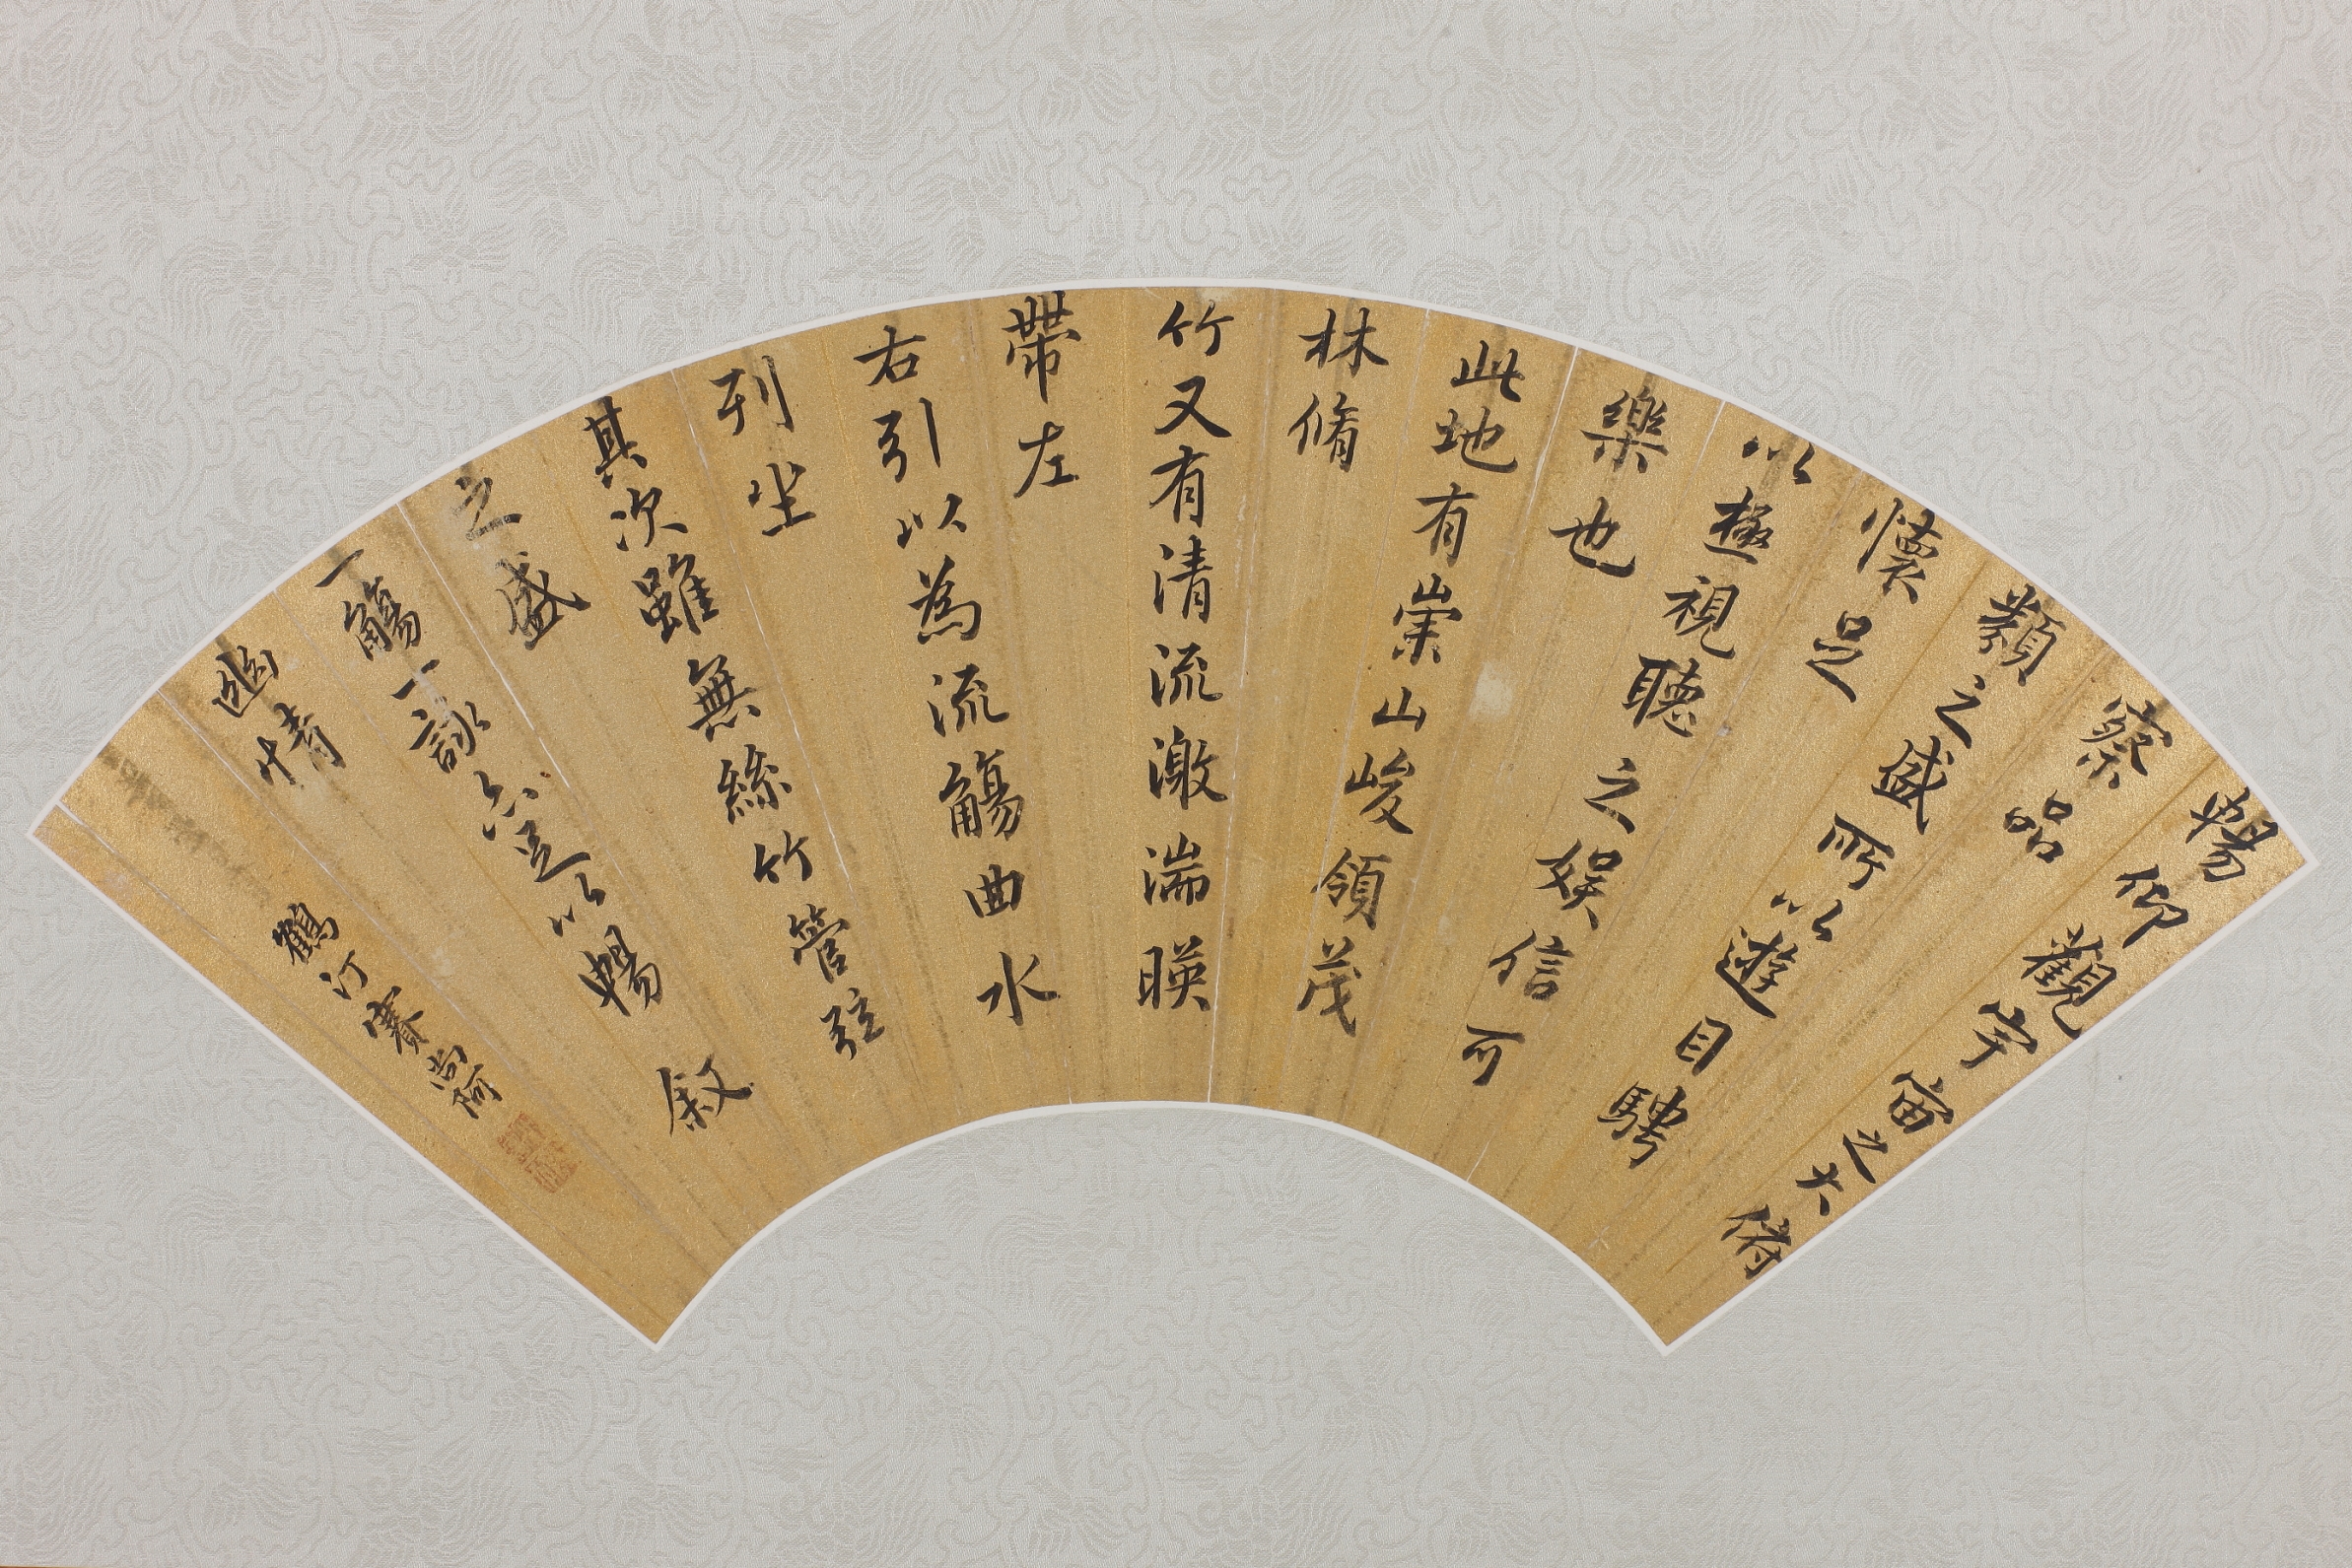 暢仰觀宇宙之大俯
察品
類之盛所以遊目騁
懷足
以極視聽之娛信可
樂也
此地有崇山峻領茂
林脩
竹又有清流激湍暎
帶左
右引以為流觴曲水
列坐
其次雖無絲竹管弦
之盛
一觴一詠亦足以暢敘
幽情
鶴汀賽尚阿